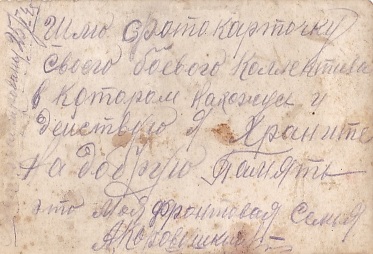 Шлю фотокарточку
своего боевого коллектива
в котором нахожусь и
действую я Храните
на добрую Память
это моя фронтовая семья